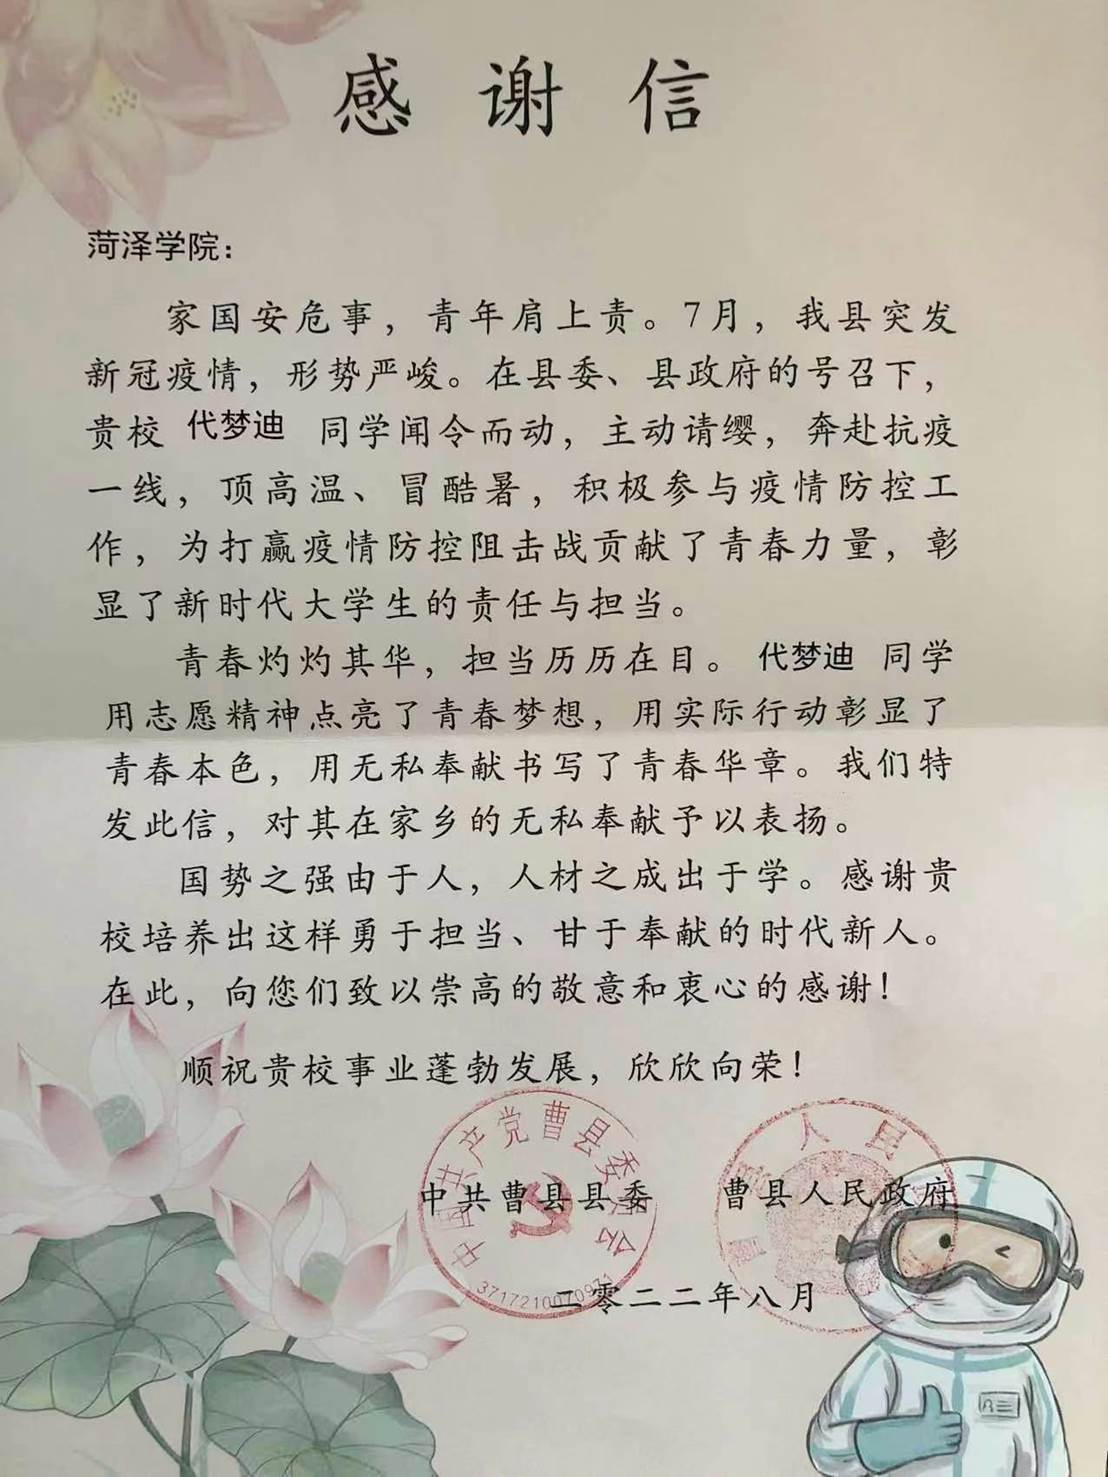 感谢信
菏泽学院：
家国安危事，青年肩上责。7月，我县突发
新冠疫情，形势严峻。在县委、县政府的号召下，
贵校 代梦迪 同学闻令而动，主动请缨，奔赴抗疫
一线，顶高温、冒酷暑，积极参与疫情防控工
作，为打赢疫情防控阻击战贡献了青春力量，彰
显了新时代大学生的责任与担当。
青春灼灼其华，担当历历在目。 代梦迪 同学
用志愿精神点亮了青春梦想，用实际行动彰显了
青春本色，用无私奉献书写了青春华章。我们特
发此信，对其在家乡的无私奉献予以表扬。
国势之强由于人，人材之成出于学。感谢贵
校培养出这样勇于担当、甘于奉献的时代新人。
在此，向您们致以崇高的敬意和衷心的感谢！
顺祝贵校事业蓬勃发展，欣欣向荣！
中国共产党曹县委员会
中共曹县县委 曹县人民政府
二零二二年八月